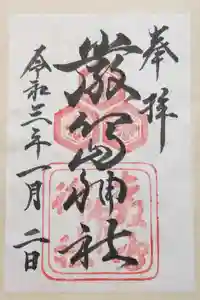 奉拝
嚴島神社
令和三年一月二日